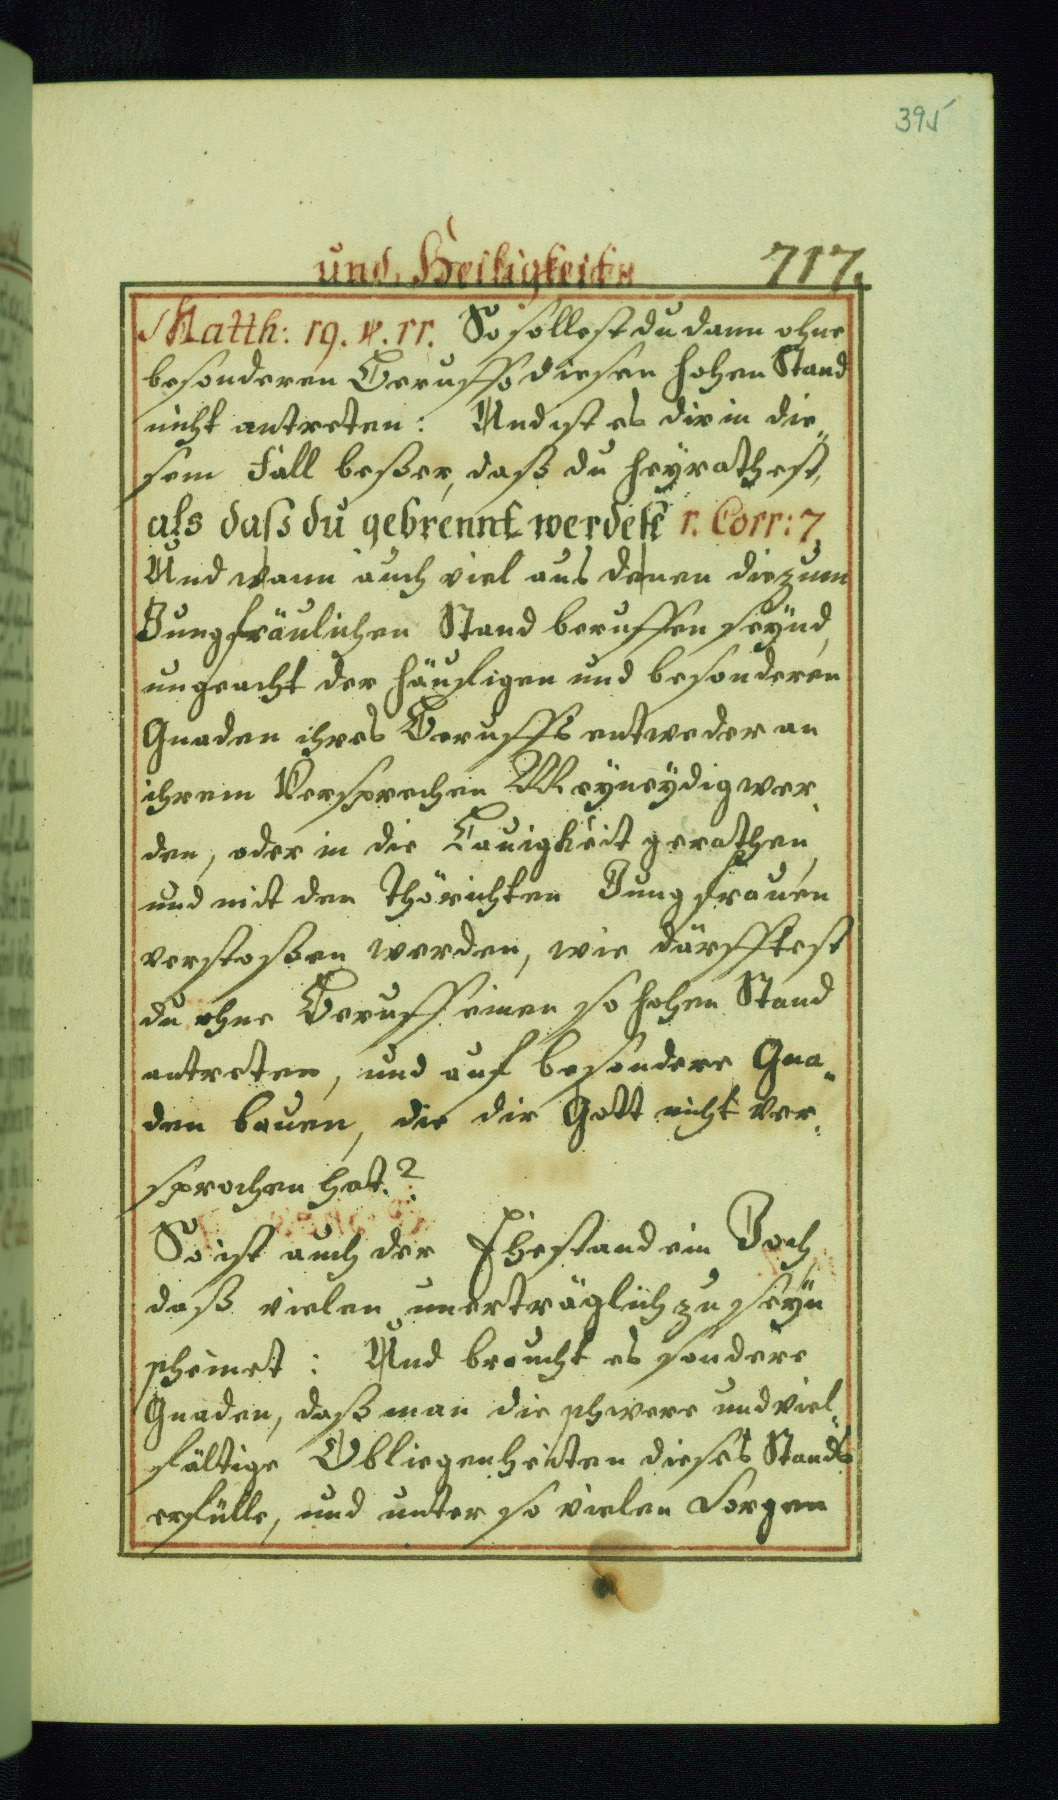 395
und Heiligkeit 717.
Matth: 19. v. 11. So sollest du dann ohne
besonderen Beruff diesen hohen Stand
nicht antretten: Und ist es dir in die„
sem Fall beßer, daß du heyrathest,
als daß du gebrennt werdest 1. Corr: 7.
Und wann auch viel aus denen die zum
Jungfräulichen Stand beruffen seynd,
ungeacht der häuffigen und besonderen
Gnaden ihres Beruffs entweder an
ihrem Versprechen Meyneydig wer„
den, oder in die Lauigkeit gerathen,
und mit den Thörichten Jungfrauen
verstoßen werden, wie därfftest
du ohne Beruff einen so hohen Stand
antretten, und auf besondere Gna„
den bauen, die dir Gott nicht ver„
sprochen hat.?
So ist auch der Ehestand ein Joch,
daß vielen unerträglich zu seyn
scheinet: Und braucht es sondere
Gnaden, daß man die schwere und viel„
fältige Obliegenheiten dieses Stands
erfülle, und unter so vielen Sorgen